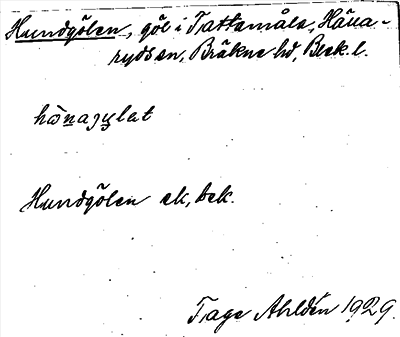 Hundgölen, göl i Tattamåla, Häna-
ryds sn, Bräkne hd, Blek. l.
Hundgölen ek, bek.
Tage Ahldén 1929.